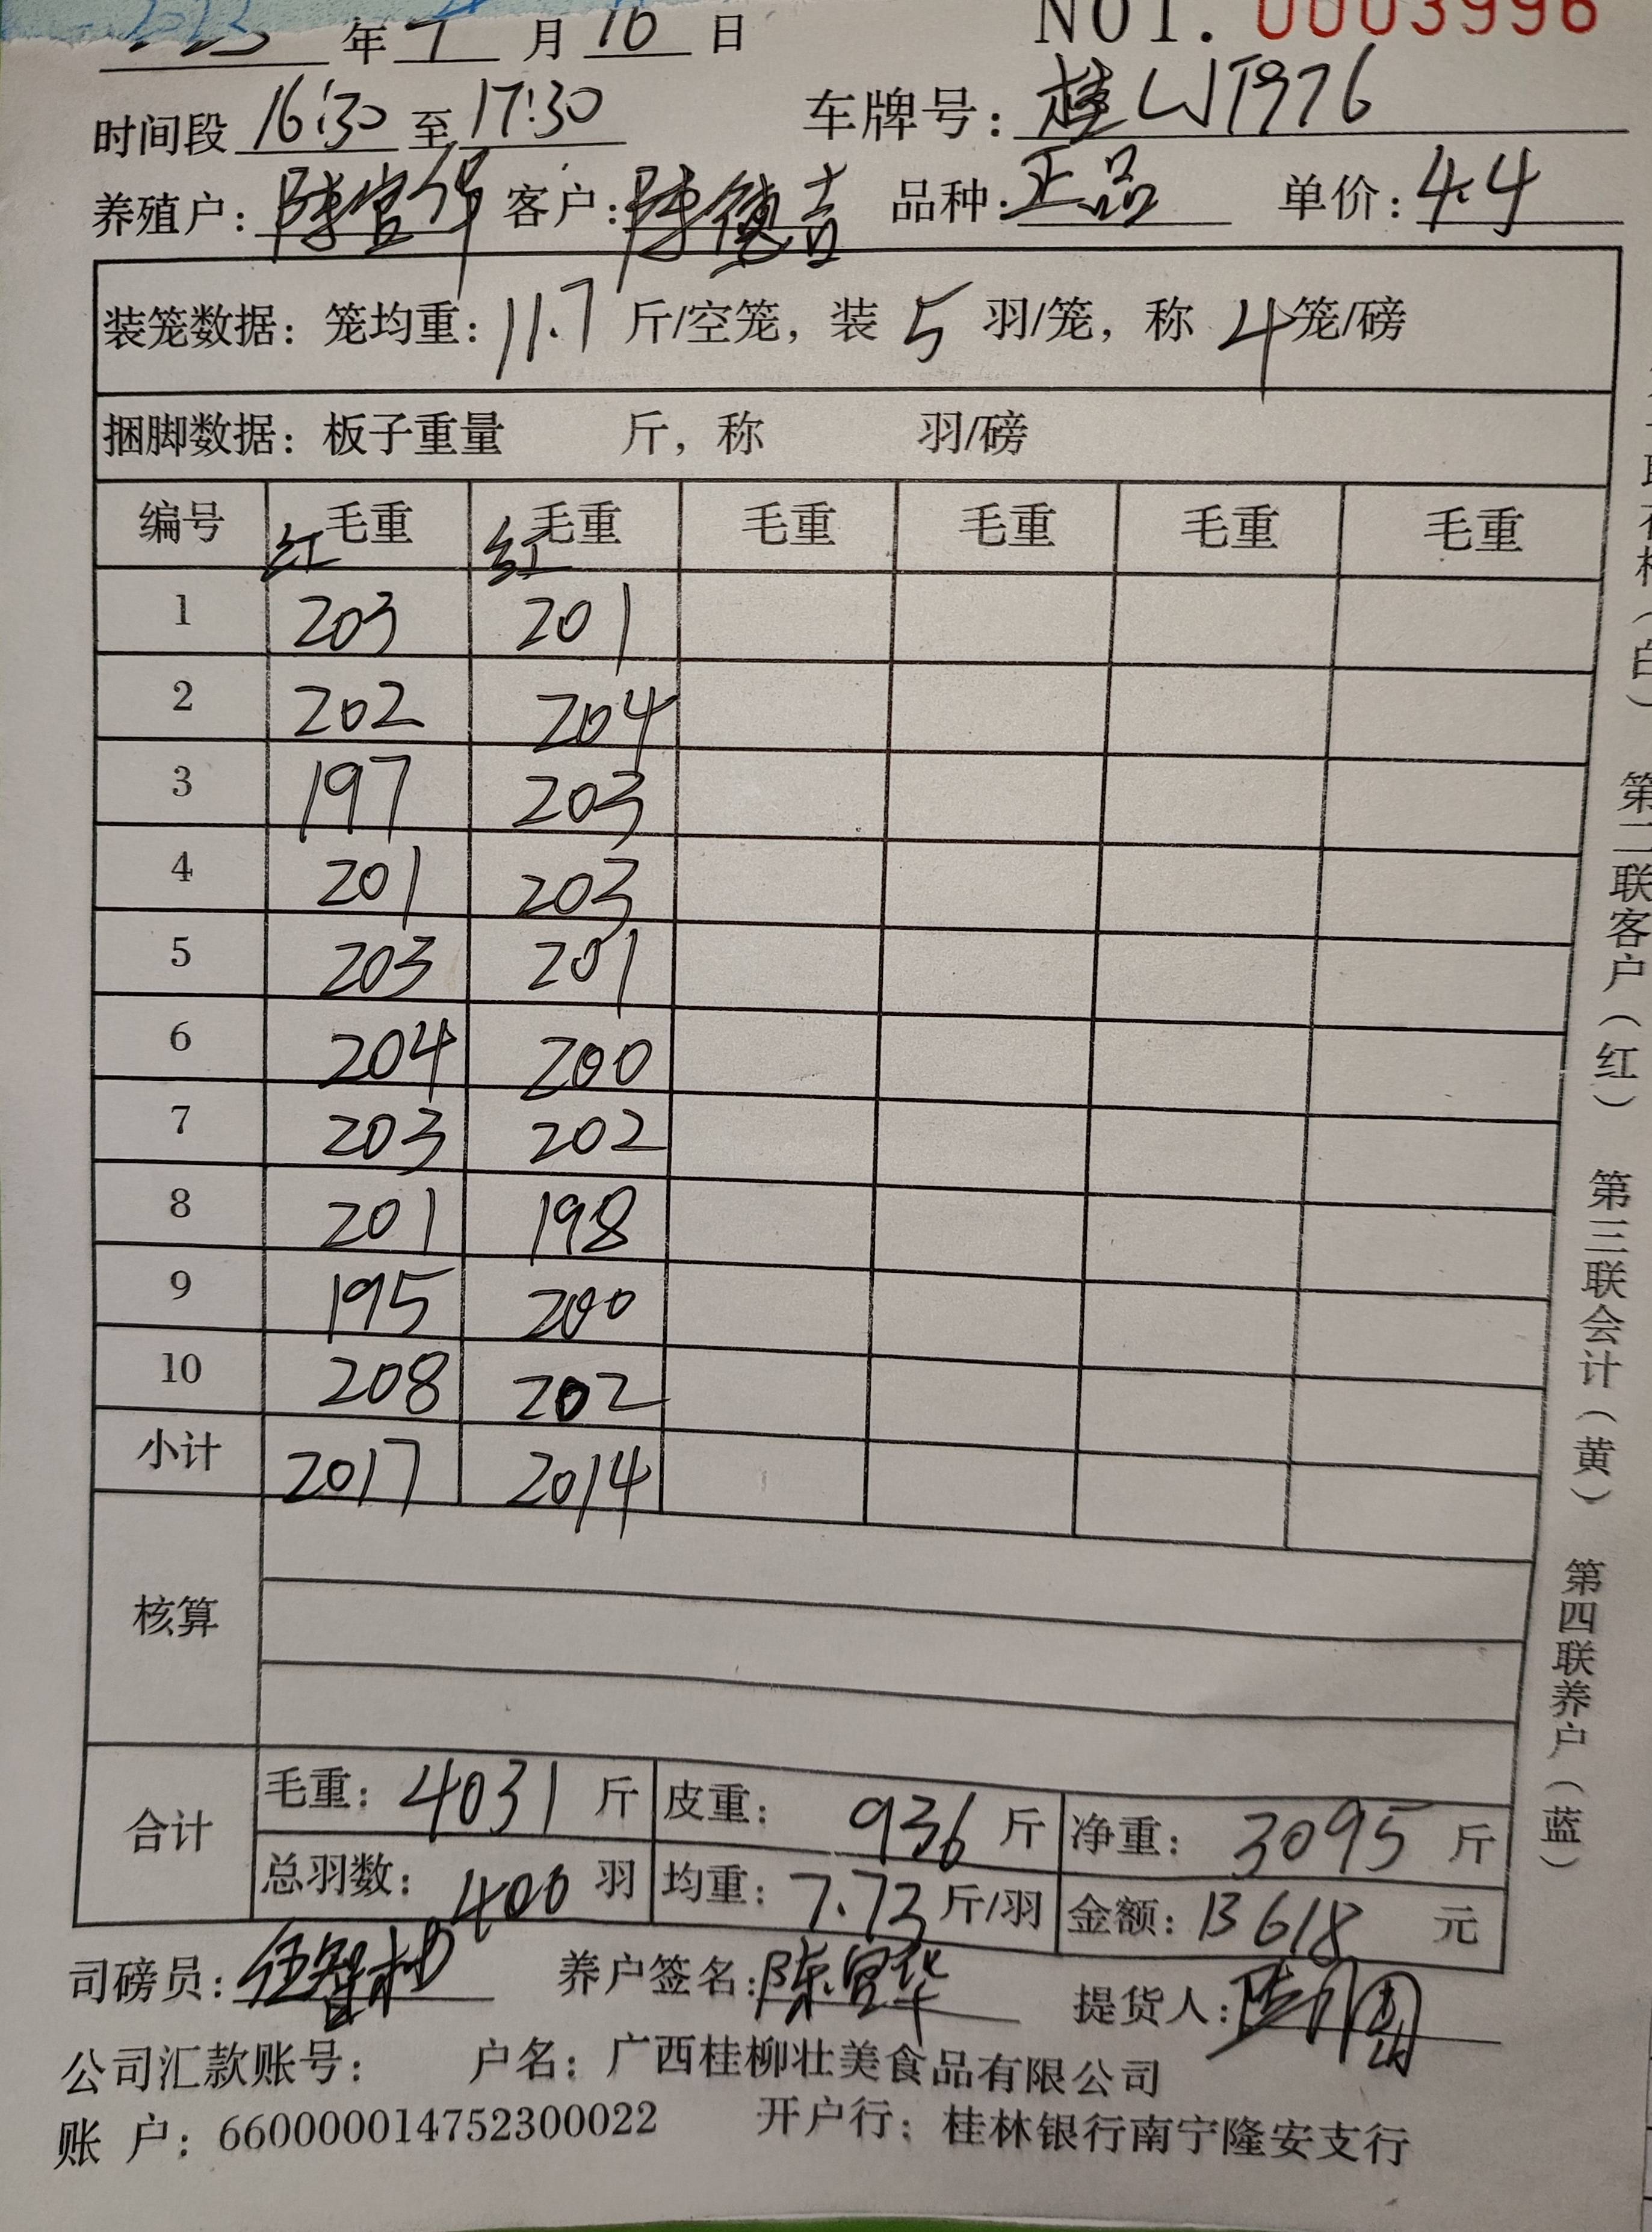 年 月 16 日 NO1. 0003996
时间段 16:30 至 17:30 车牌号: 桂
养殖户: 客户: 陈德吉 品种: 正品 单价: 4.4
装笼数据: 笼均重: 11.7 斤/空笼, 装 5 羽/笼, 称 4 笼/磅
捆脚数据: 板子重量 斤, 称 羽/磅
编号 红 毛重 红 毛重 毛重 毛重 毛重 毛重
1 203 201
2 202 204
3 197 203
4 201 203
5 203 201
6 204 200
7 203 202
8 201 198
9 195 200
10 208 202
小计 2017 2014
核算
合计 毛重: 4031 斤 皮重: 936 斤 净重: 3095 斤
总羽数: 400 羽 均重: 7.73 斤/羽 金额: 13618 元
司磅员: 养户签名: 提货人:
公司汇款账号: 户名: 广西桂柳壮美食品有限公司
账 户: 660000014752300022 开户行: 桂林银行南宁隆安支行
(白) 第二联客户(红) 第三联会计(黄) 第四联养户(蓝)